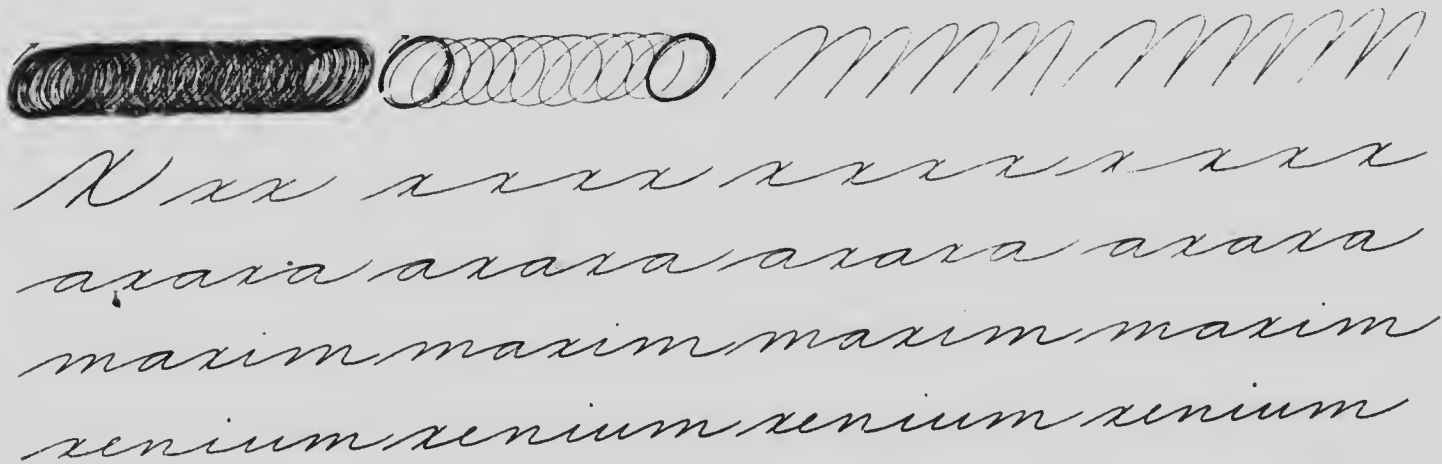 x xx xxxx xxxx xxxx
axaxa axaxa axaxa axaxa
maxim maxim maxim maxim
xenium xenium xenium xenium